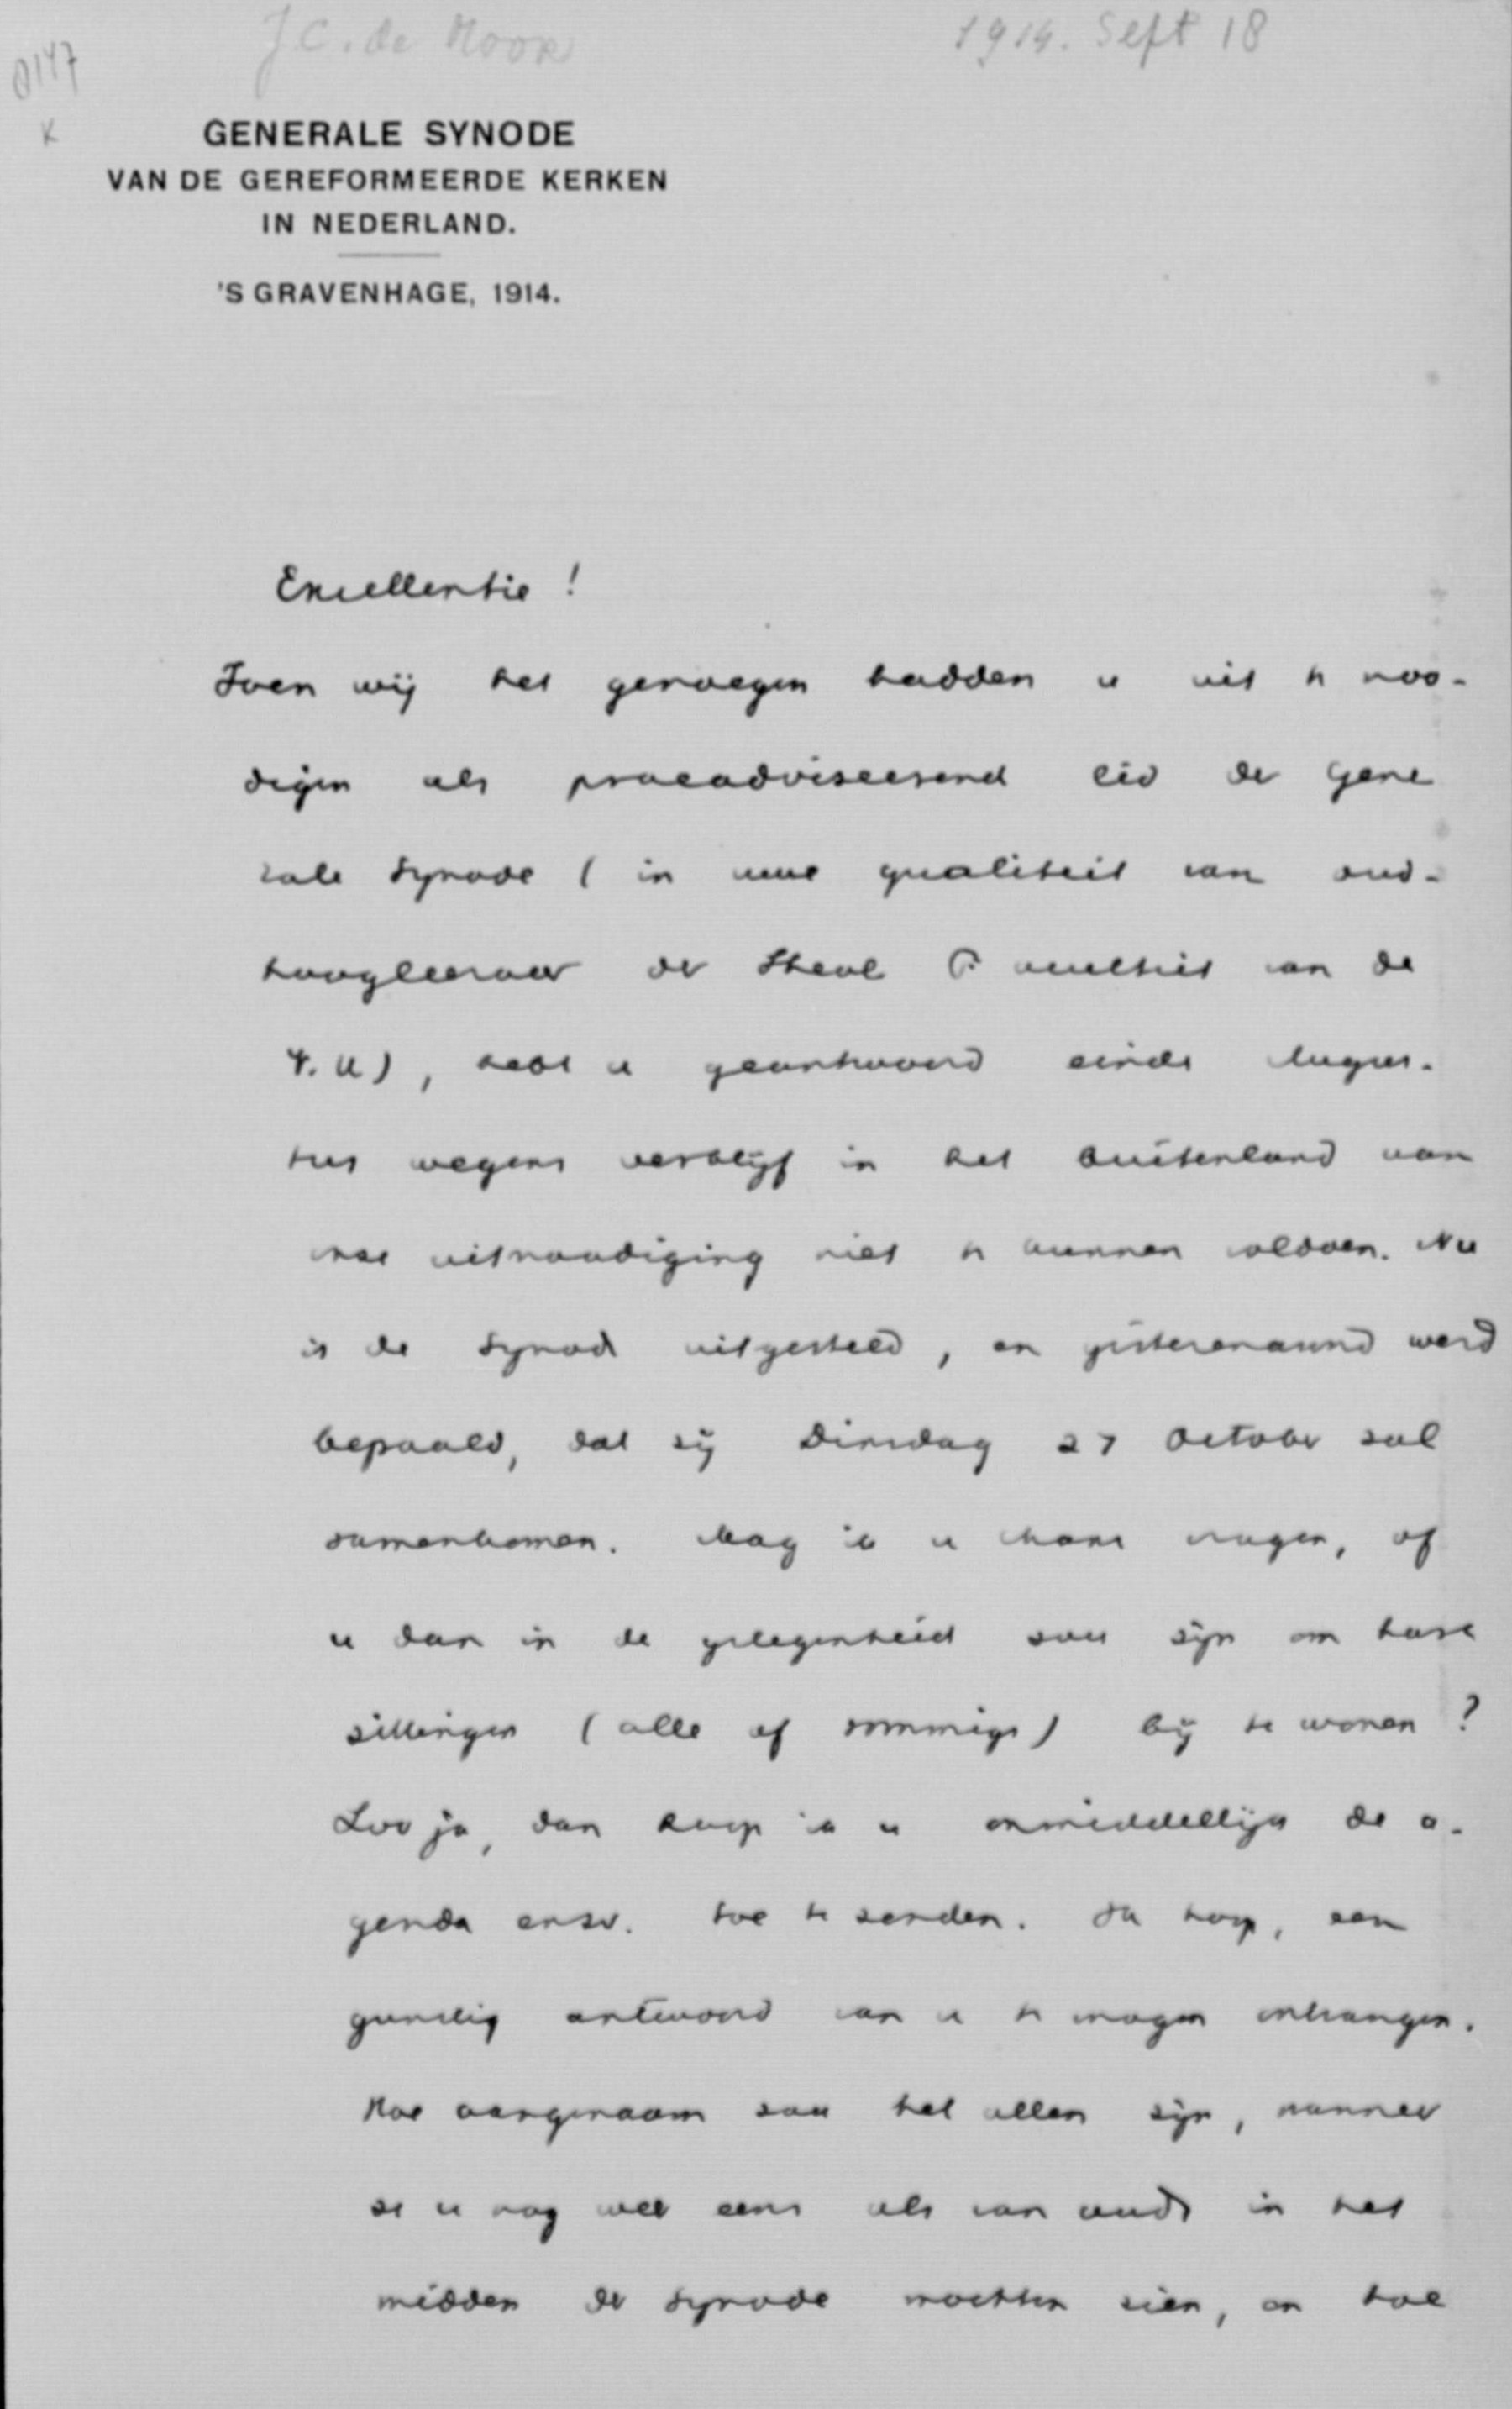 J.C. de Moor
1914. Sept 18
0147
K
GENERALE SYNODE
VAN DE GEREFORMEERDE KERKEN
IN NEDERLAND.
'S GRAVENHAGE, 1914.
Excellentie!
Toen wij het genoegen hadden u uit te noo-
digen als praeadviseerend lid der Gene
rale Synode (in uwe qualiteit van oud-
hoogleeraar der Theol Faculteit van de
V.U), hebt u geantwoord einde Augus-
tus wegens verblijf in het buitenland aan
onze uitnoodiging niet te kunnen voldoen. Nu
is de Synode uitgesteld, en gisterenavond werd
bepaald, dat zij Dinsdag 27 October zal
samenkomen. Mag ik u thans vragen, of
u dan in de gelegenheid zou zijn om hare
zittingen (alle of sommige) bij te wonen?
Zoo ja, dan hoop ik u onmiddellijk de a-
genda enz. toe te zenden. Ik hoop, een
gunstig antwoord van u te mogen ontvangen.
Hoe aangenaam zou het allen zijn, wanneer
ze u nog wel eens als van ouds in het
midden der Synode mochten zien, en hoe